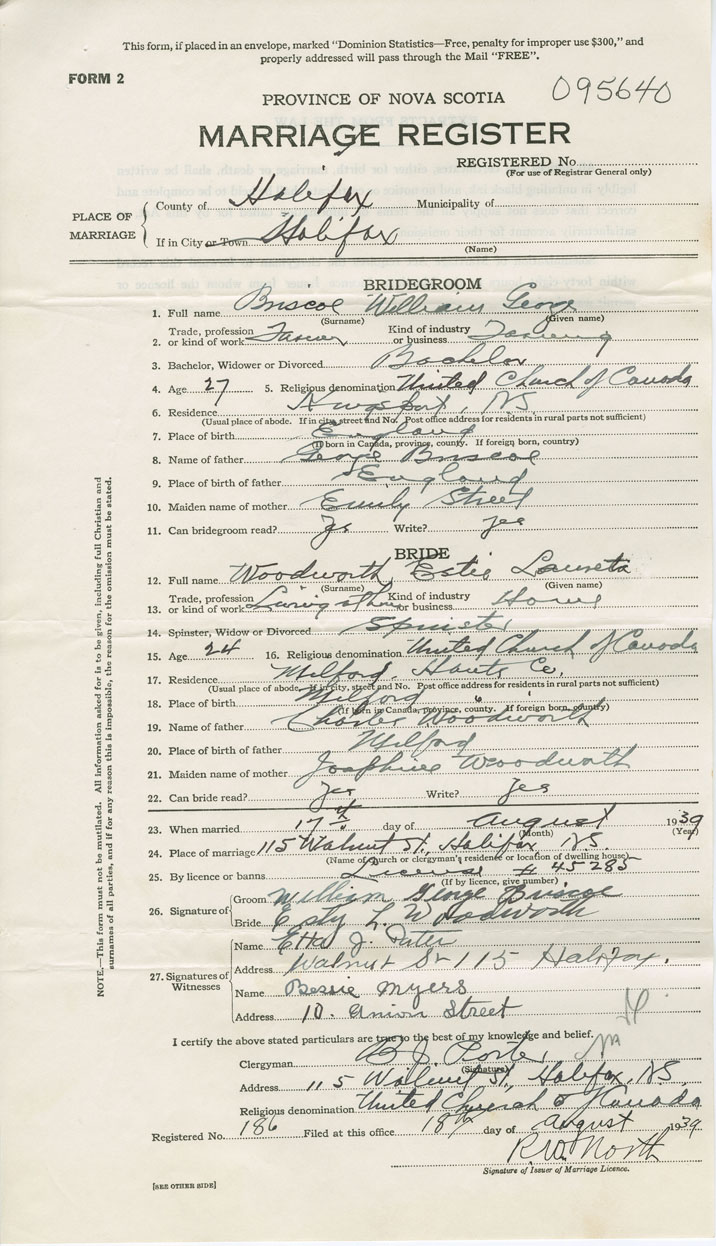 This form, if placed in an envelope, marked "Dominion Statistics—Free, penalty for improper use $300," and
properly addressed will pass through the Mail "FREE".
FORM 2
095640
PROVINCE OF NOVA SCOTIA
MARRIAGE REGISTER
REGISTERED No.
(For use of Registrar General only)
PLACE OF MARRIAGE
County of Halifax Municipality of
If in City or Town Halifax
(Name)
BRIDEGROOM
1. Full name Briscoe William George
(Surname) (Given name)
2. Trade, profession or kind of work Farmer Kind of industry or business Farming
3. Bachelor, Widower or Divorced Bachelor
4. Age 27 5. Religious denomination United Church of Canada
6. Residence Kingsport, NS
(Usual place of abode. If in city, street and No. Post office address for residents in rural parts not sufficient)
7. Place of birth England
(If born in Canada, province, county. If foreign born, country)
8. Name of father George Briscoe
9. Place of birth of father England
10. Maiden name of mother Emily Street
11. Can bridegroom read? Yes Write? Yes
BRIDE
12. Full name Woodworth, Estie Laureta
(Surname) (Given name)
13. Trade, profession or kind of work Living at home Kind of industry or business Home
14. Spinster, Widow or Divorced Spinster
15. Age 24 16. Religious denomination United Church of Canada
17. Residence Milford, Hants Co.
(Usual place of abode. If in city, street and No. Post office address for residents in rural parts not sufficient)
18. Place of birth Milford
(If born in Canada, province, county. If foreign born, country)
19. Name of father Charles Woodworth
20. Place of birth of father Milford
21. Maiden name of mother Josephine Woodworth
22. Can bride read? Yes Write? Yes
23. When married 17th day of August 1939
(Month) (Year)
24. Place of marriage 115 Walnut St., Halifax, NS.
(Name of Church or clergyman's residence or location of dwelling house)
25. By licence or banns License # 45285
(If by licence, give number)
26. Signature of
Groom William George Briscoe
Bride Esty L. Woodworth
27. Signatures of Witnesses
Name Etta J.
Address Walnut St 115 Halifax.
Name Bessie Myers
Address 10. Union Street
I certify the above stated particulars are true to the best of my knowledge and belief.
Clergyman B J Porter
(Signature)
Address 115 Walnut St., Halifax, NS.
Religious denomination United Church of Canada
Registered No. 186 Filed at this office 18th day of August 1939
North
Signature of Issuer of Marriage Licence.
[SEE OTHER SIDE]
NOTE.—This form must not be mutilated. All information asked for is to be given, including full Christian and
surnames of all parties, and if for any reason this is impossible, the reason for the omission must be stated.